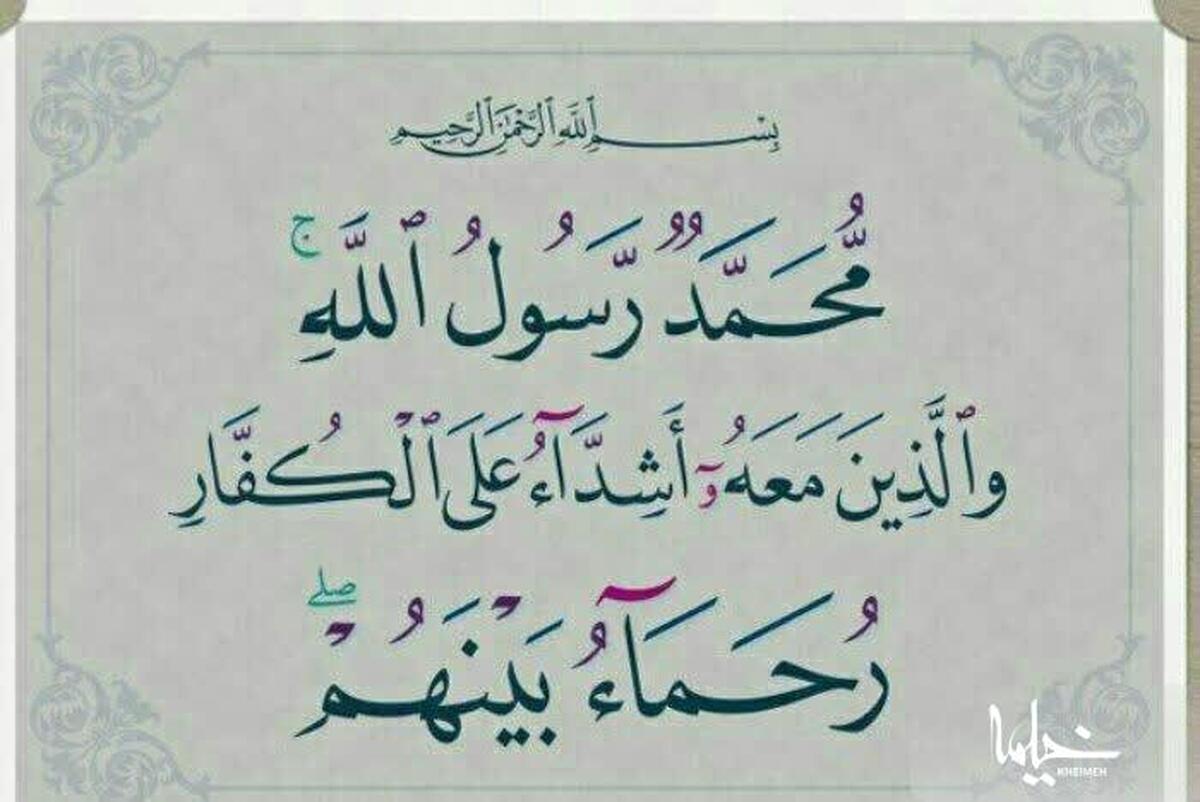 بِسْمِ ٱللَّهِ ٱلرَّحْمَٰنِ ٱلرَّحِيمِ
مُّحَمَّدٌ رَّسُولُ ٱللَّهِ ۚ
وَٱلَّذِينَ مَعَهُۥٓ أَشِدَّآءُ عَلَى ٱلْكُفَّارِ
رُحَمَآءُ بَيْنَهُمْ ۖ
KHEIMEH